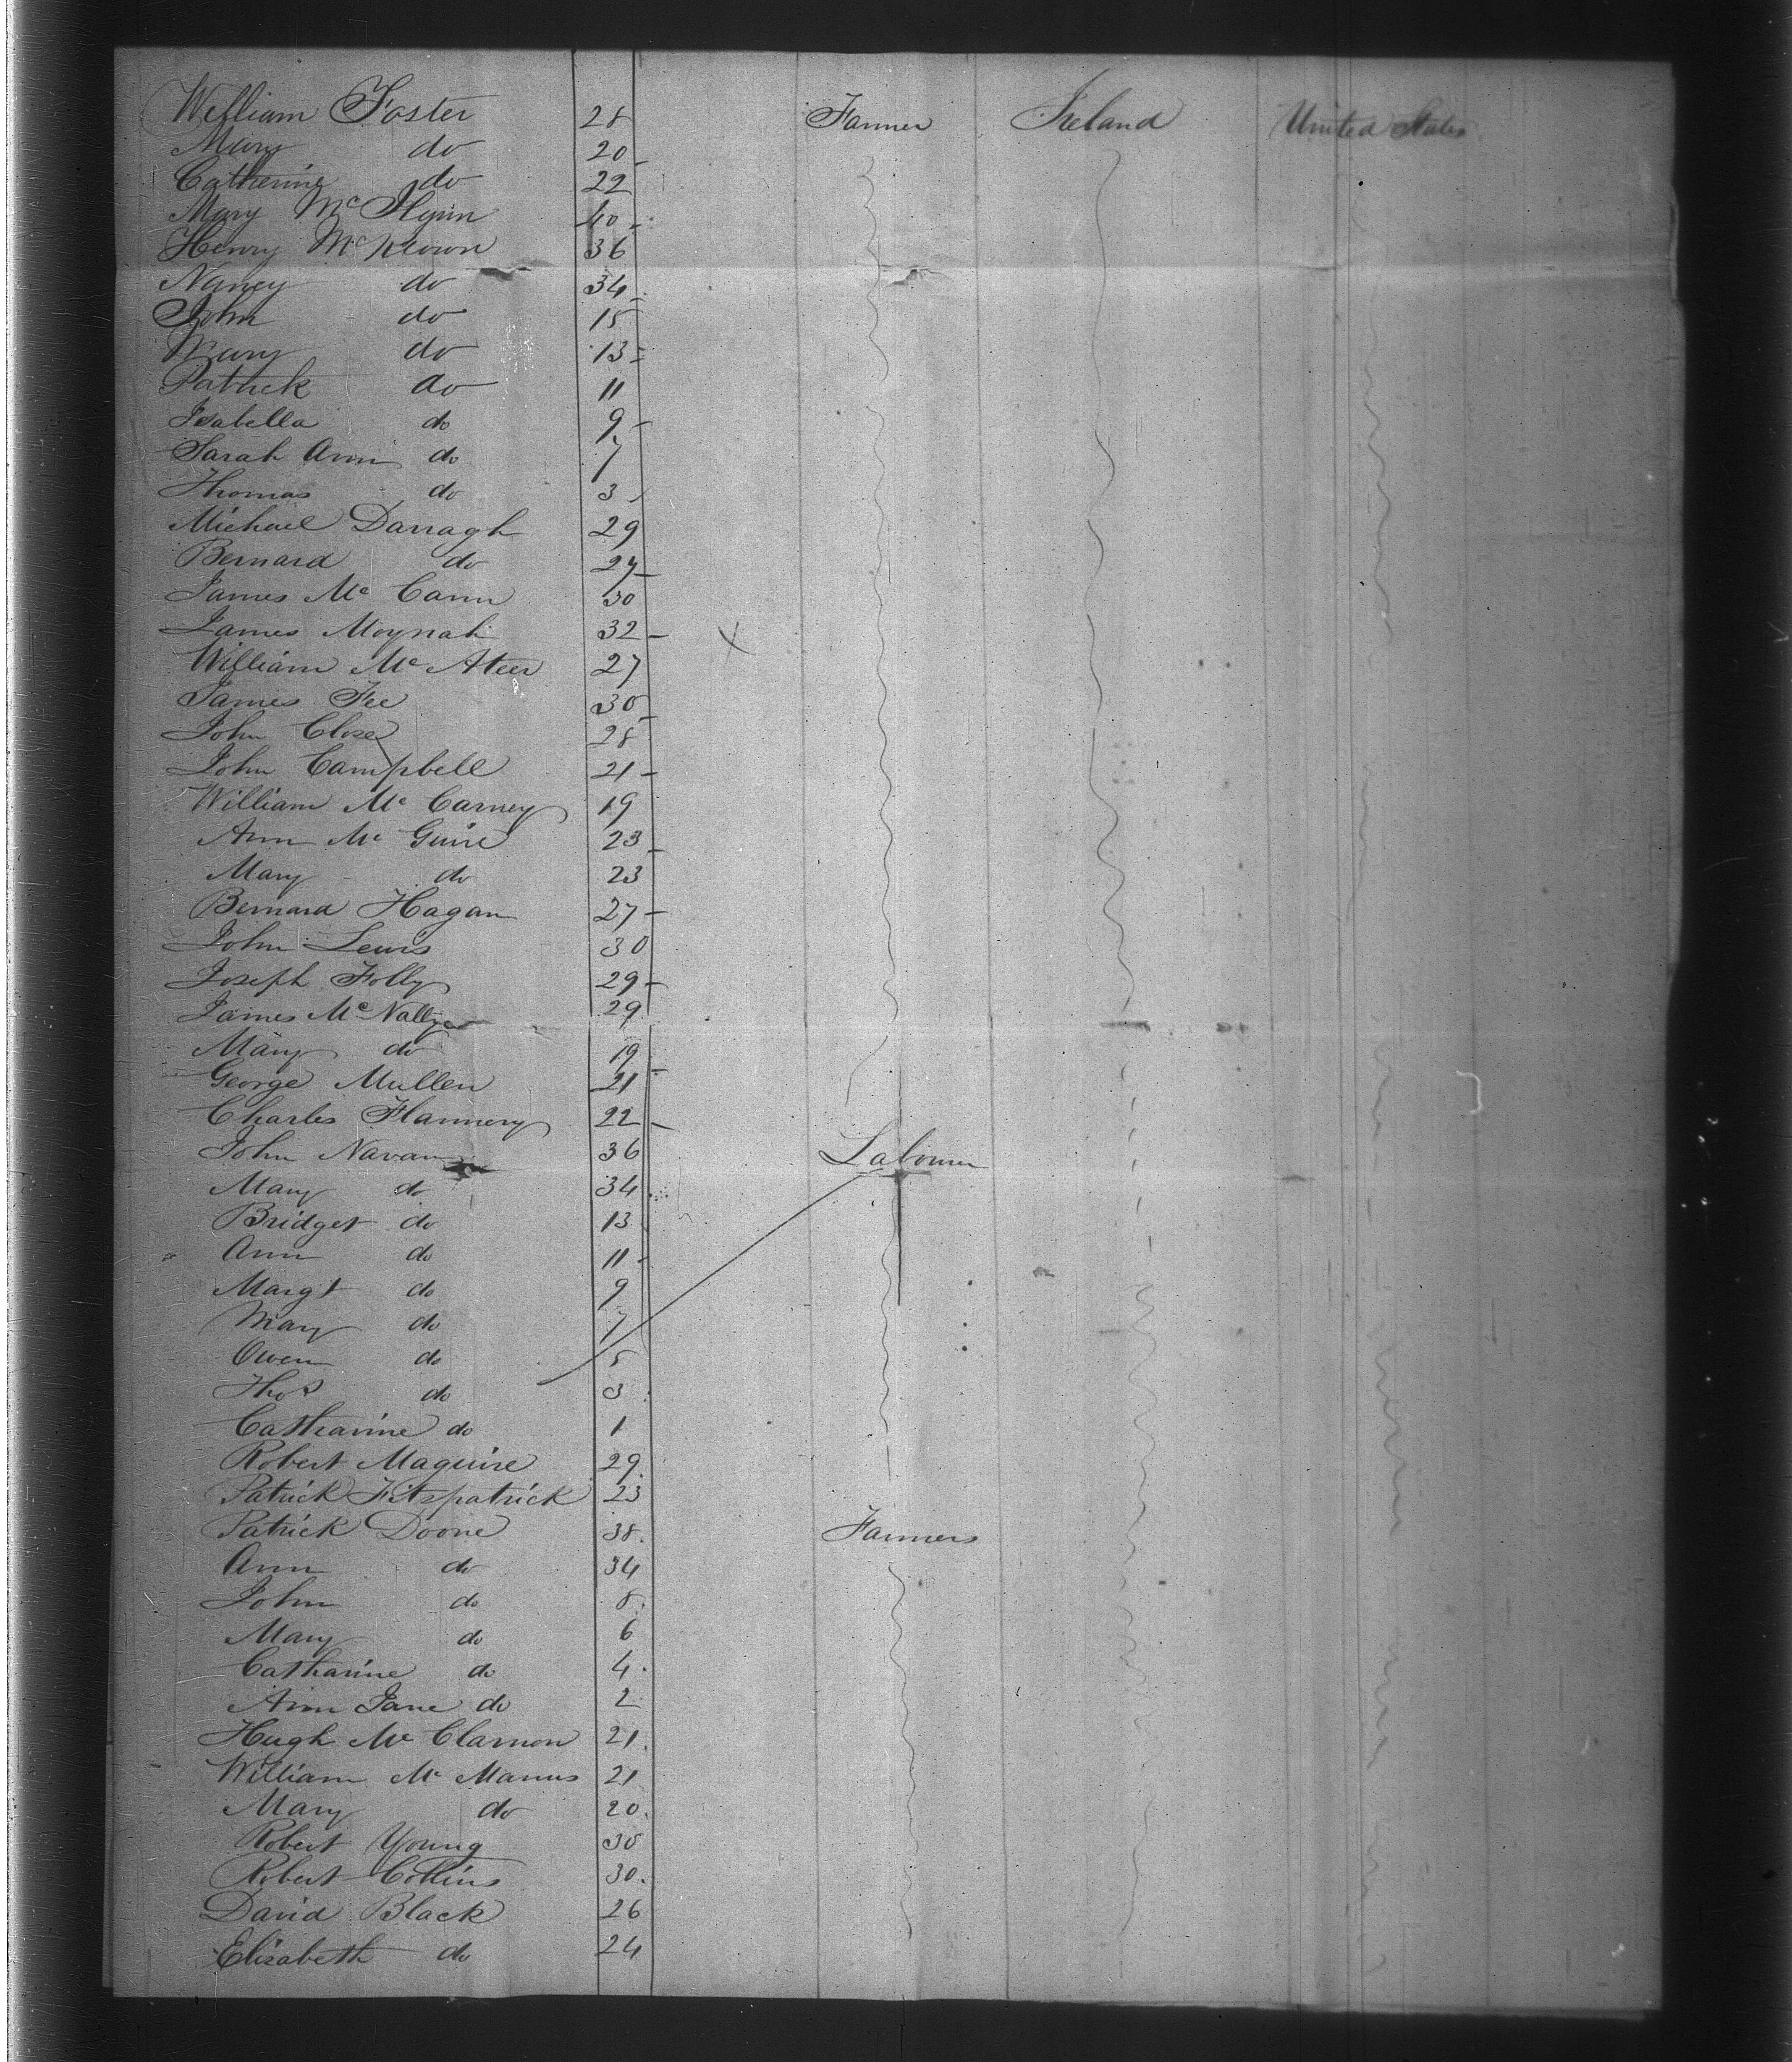 William Foster 28 Farmer Ireland United States
Mary do 20
Catherine do 22
Mary Mc Flynn 40
Henry Mc Keown 36
Nancy do 34
John do 15
Mary do 13
Patrick do 11
Isabella do 9
Sarah Ann do 7
Thomas do 3
Michael Darragh 29
Bernard do 27
James Mc Cann 30
James Moynah 32 X
William Mc Ateer 27
James Fee 30
John Close 28
John Campbell 21
William Mc Carney 19
Ann Mc Guire 23
Mary do 23
Bernard Hagan 27
John Lewis 30
Joseph Folly 29
James Mc Nally 29
Mary do 19
George Mullen 21
Charles Flannery 22
John Navan 36 Labourer
Mary do 34
Bridget do 13
Ann do 11
Margt do 9
Mary do 7
Owen do 5
Thos do 3
Catharine do 1
Robert Maguire 29
Patrick Fitzpatrick 23
Patrick Doone 38 Farmers
Ann do 34
John do 8
Mary do 6
Catharine do 4
Ann Jane do 2
Hugh Mc Clarnon 21
William Mc Manus 21
Mary do 20
Robert Young 30
Robert Collins 30
David Black 26
Elisabeth do 24